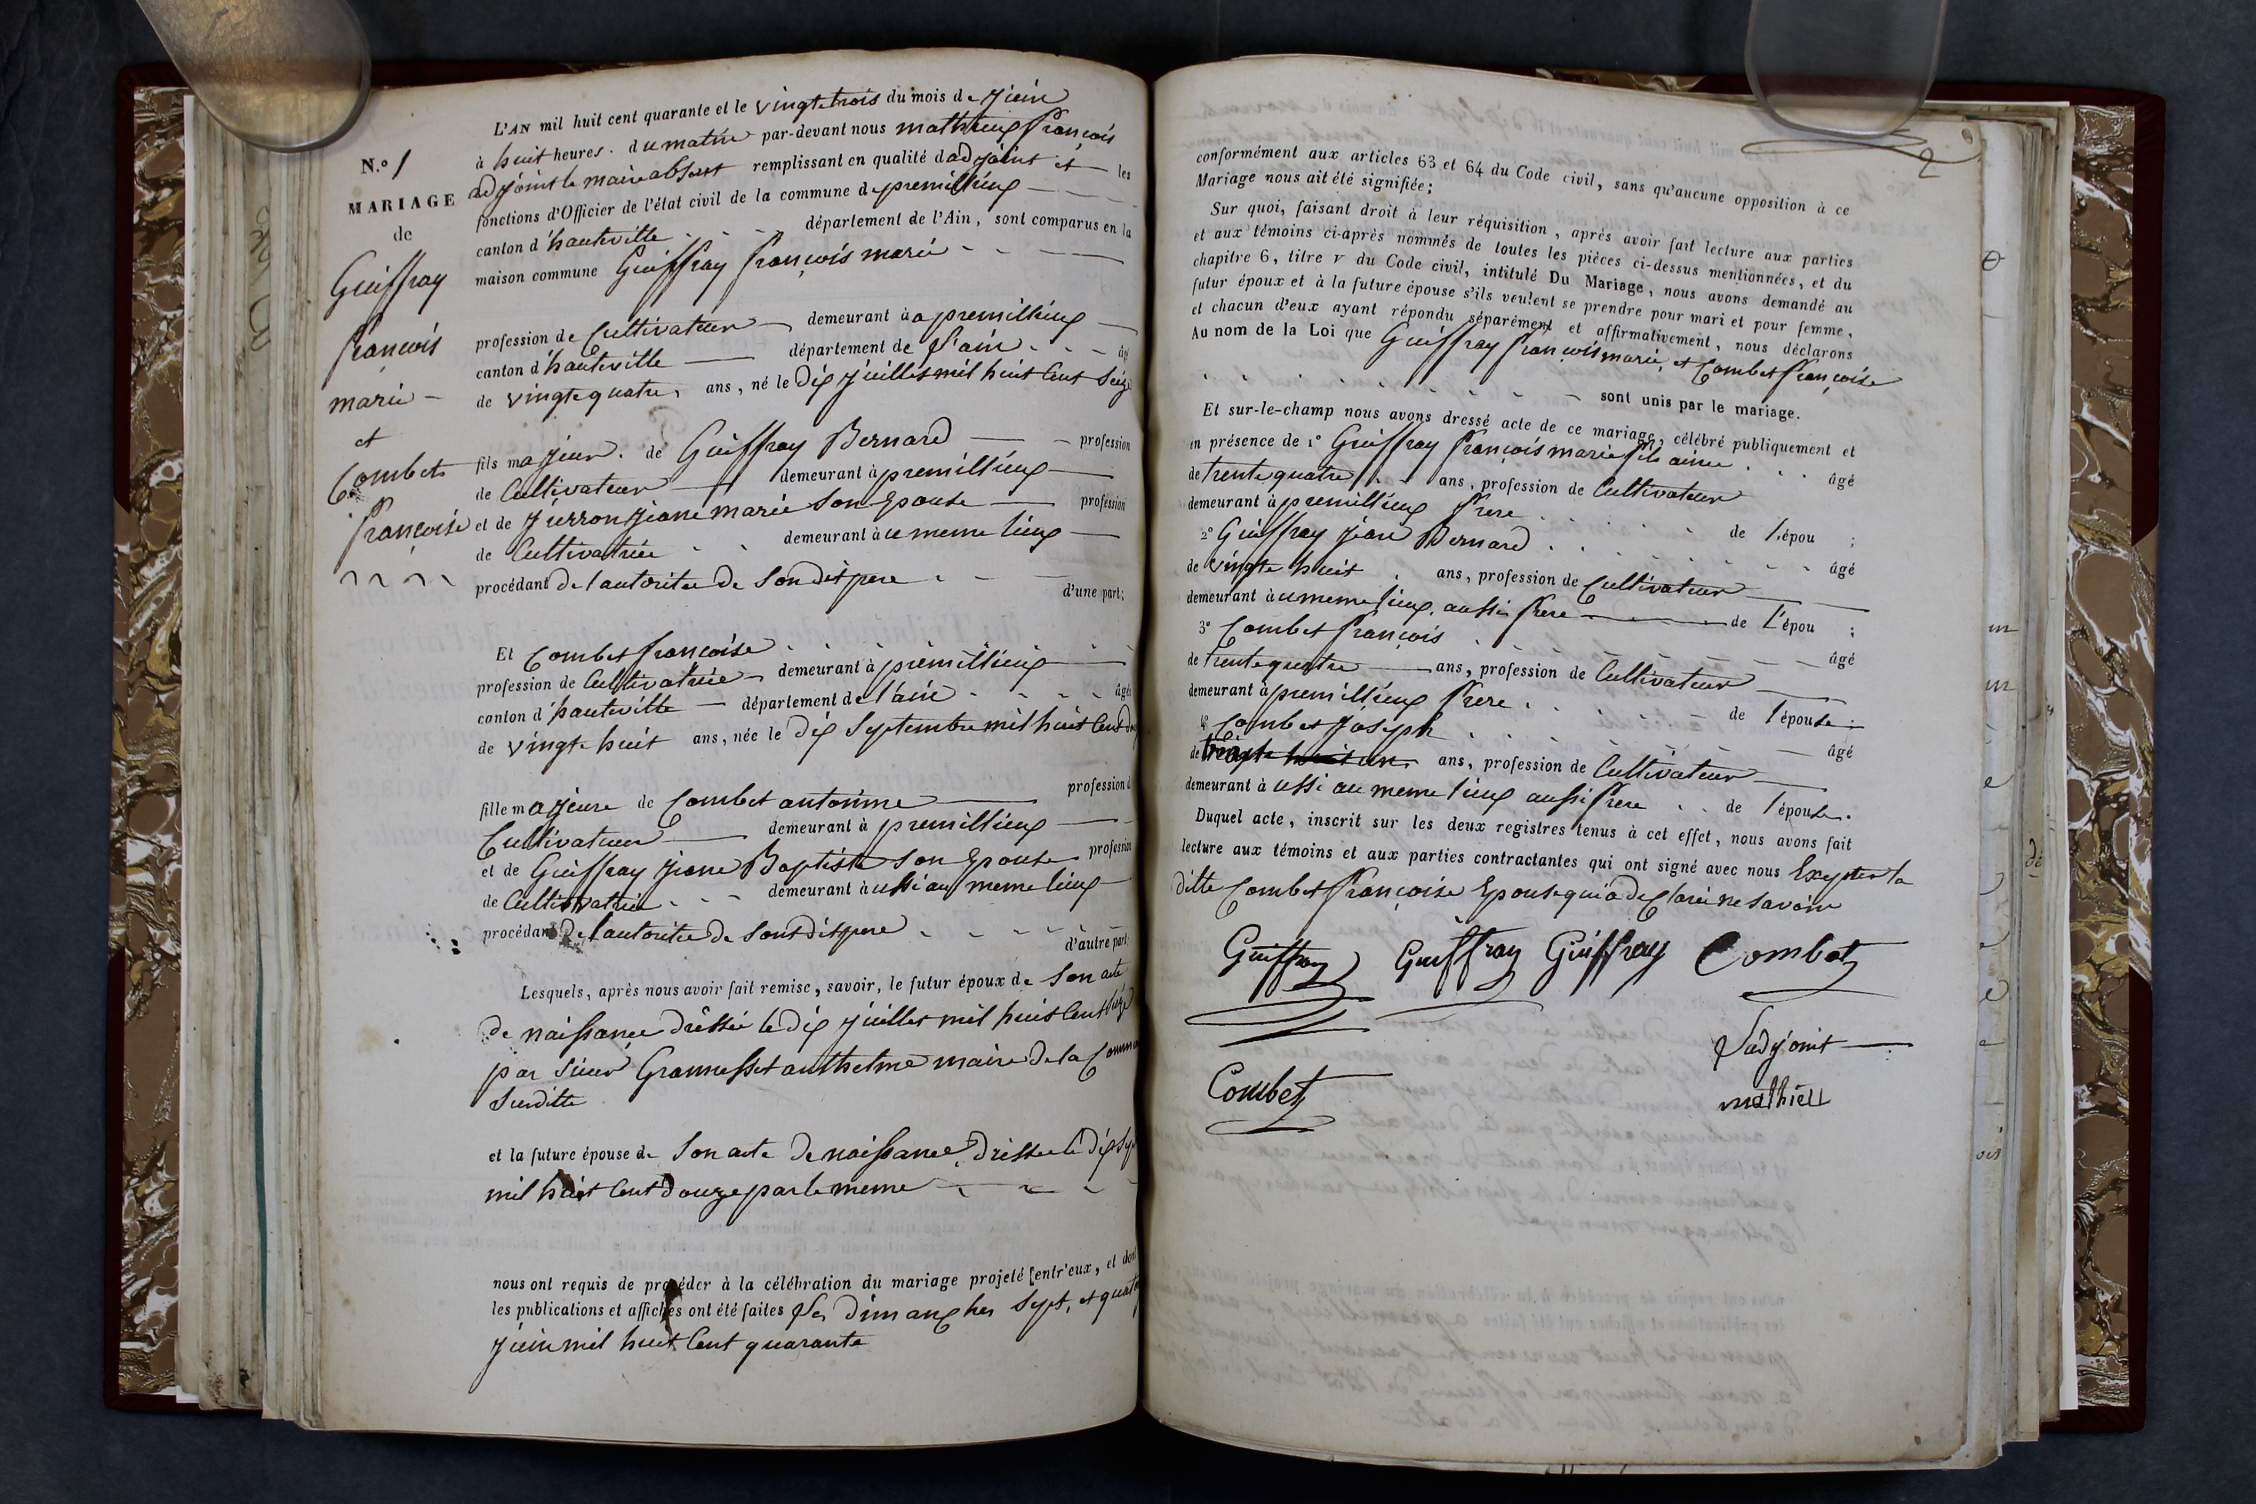 N.o 1
MARIAGE
de
Guiffray
françois
marie
et
Combet
françoise
L'AN mil huit cent quarante et le vingt trois du mois de juin
à huit heures. du matin par-devant nous mathieux françois
adjoint le maire absent remplissant en qualité d adjoint et les
fonctions d'Officier de l'état civil de la commune de premillieux
canton d'hauteville département de l'Ain, sont comparus en la
maison commune Guiffray françois marie
profession de Cultivateur demeurant à a premillieux
canton d'hauteville département de l'ain âgé
de vingt quatre ans, né le dix juillet mil huit Cent Seize
fils majeur de Guiffray Bernard profession
de Cultivateur demeurant à premillieux
et de jeane marie Son Epouse profession
de Cultivatrice demeurant à u meme lieux
procédant de l autoritée de Son dit pere
d'une part;
Et Combet françoise
profession de Cultivatrice demeurant à premillieux
canton d'hauteville département de l'ain âgée
de vingt huit ans, née le dix Septembre mil huit Cent
fille majeure de Combet antoinne profession de
Cultivateur demeurant à premillieux
et de Guiffray jeane Baptiste Son Epouse profession
de Cultivatrice demeurant à ussi au meme lieux
procédant de l autoritée de Sont dit pere
d'autre part
Lesquels, après nous avoir fait remise, savoir, le futur époux de Son acte
de naissance dréssée le dix juillet mil huit Cent Seize
par Sieur anthelme maire de la
Surditte
et la future épouse de Son acte de naissance dréssée le dix
mil huit Cent douze par le meme
nous ont requis de procéder à la célébration du mariage projeté entr'eux, et dont
les publications et affiches ont été faites les dimanches Sept, et
juin mil huit Cent quarante
2
conformément aux articles 63 et 64 du Code civil, sans qu'aucune opposition à ce
Mariage nous ait été signifiée;
Sur quoi, faisant droit à leur réquisition, après avoir fait lecture aux parties
et aux témoins ci-après nommés de toutes les pièces ci-dessus mentionnées, et du
chapitre 6, titre V du Code civil, intitulé Du Mariage, nous avons demandé au
futur époux et à la future épouse s'ils veulent se prendre pour mari et pour femme,
et chacun d'eux ayant répondu séparément et affirmativement, nous déclarons
Au nom de la Loi que Guiffray françois marie, et Combet françoise
sont unis par le mariage.
Et sur-le-champ nous avons dressé acte de ce mariage, célébré publiquement et
en présence de 1° Guiffray françois marie fils ainée âgé
de trente quatre ans, profession de Cultivateur
demeurant à premillieux frere de L'épou ;
2° Guiffray jean Bernard âgé
de vingte huit ans, profession de Cultivateur
demeurant à u meme lieux, aussi frere de L'épou ;
3° Combet françois âgé
de trente quatre ans, profession de Cultivateur
demeurant à premillieux frere de l'épouse ;
4° Combet Joseph âgé
de ans, profession de Cultivateur
demeurant à ussi au meme lieux aussi frere de l'épouse.
Duquel acte, inscrit sur les deux registres tenus à cet effet, nous avons fait
lecture aux témoins et aux parties contractantes qui ont signé avec nous Exepter la
ditte Combet françoise Epouse qui a déclaré ne savoir
Guiffray Guiffray Guiffray Combet
L'adjoint
Combet
mathieu